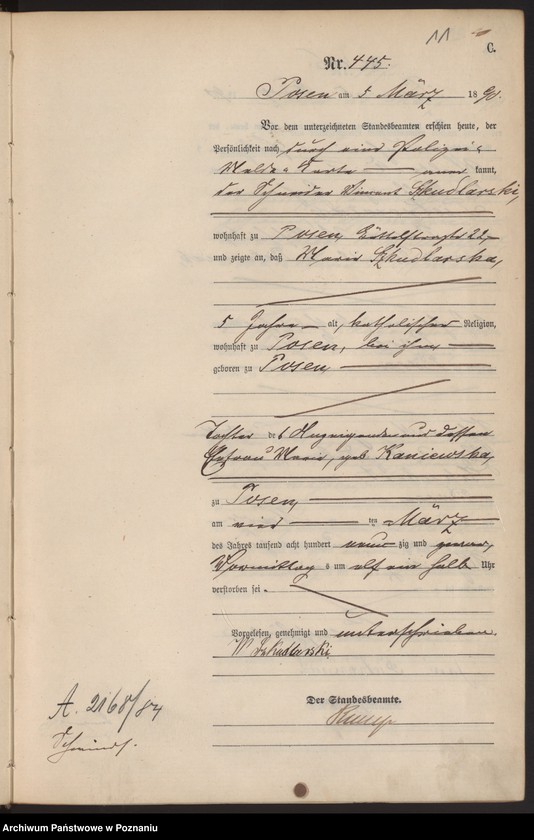 11
C.
Nr. 445.
Posen am 5 März 1890.
Vor dem unterzeichneten Standesbeamten erschien heute, der
Persönlichkeit nach durch eine Polizei-
Melde-Karte kannt,
der Schneider Vincent Szkudlarski,
wohnhaft zu Posen, 22,
und zeigte an, daß Maria Szkudlarska,
5 Jahre alt, katholischer Religion,
wohnhaft zu Posen, bei ihm
geboren zu Posen
Tochter des Anzeigenden und dessen
Ehefrau Maria, geb Kaniewska,
zu Posen,
am vier ten März
des Jahres tausend acht hundert neun zig und
Vormittags um elf ein halb Uhr
verstorben sei.
Vorgelesen, genehmigt und unterschrieben.
W Szkudlarski
Der Standesbeamte.
A. 2168/84
Archiwum Państwowe w Poznaniu